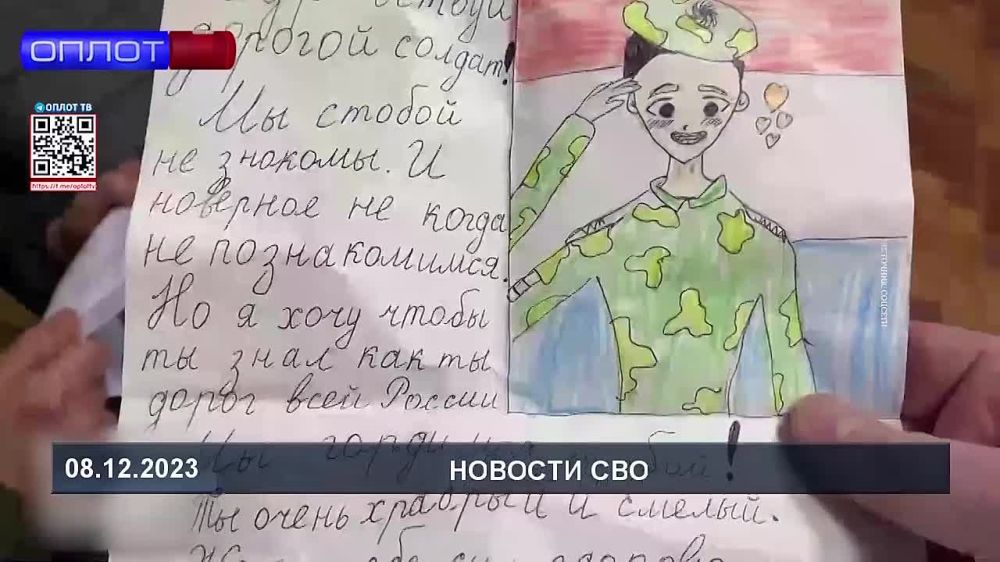 ОПЛОТ
ОПЛОТ ТВ
https://t.me/oplottv
дорогой солдат!
Мы стобой
не знакомы. И
новерное не когда
не познакомимся.
Но я хочу чтобы
ты знал как ты
дорог всей России
!
Ты очень храбрый и смелый.
ИСТОЧНИК: СОЦСЕТИ
08.12.2023
НОВОСТИ СВО